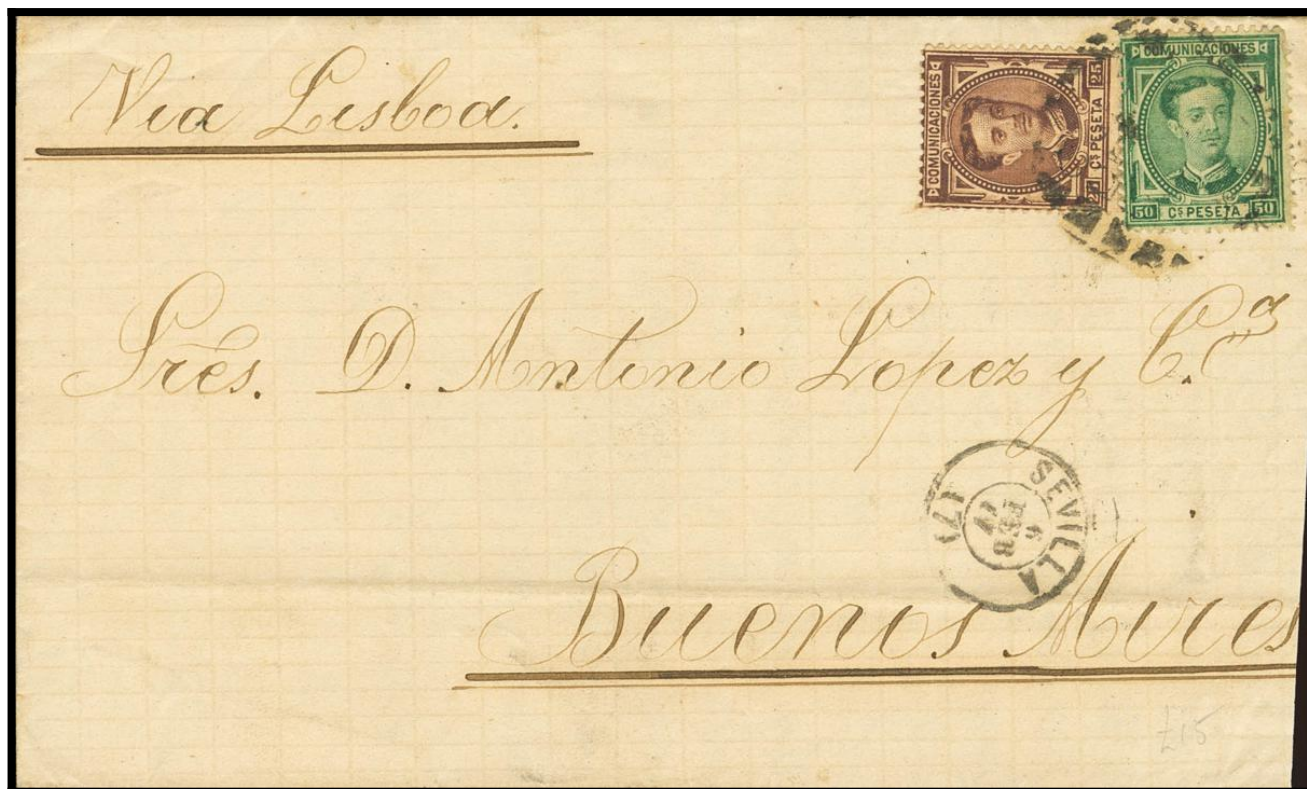 Via Lisboa.
COMUNICACIONES
25 Cs PESETA 25
COMUNICACIONES
50 Cs PESETA 50
Sres. D. Antonio Lopez y C.a
SEVILLA
6
FEB
77
Buenos Aires
£15